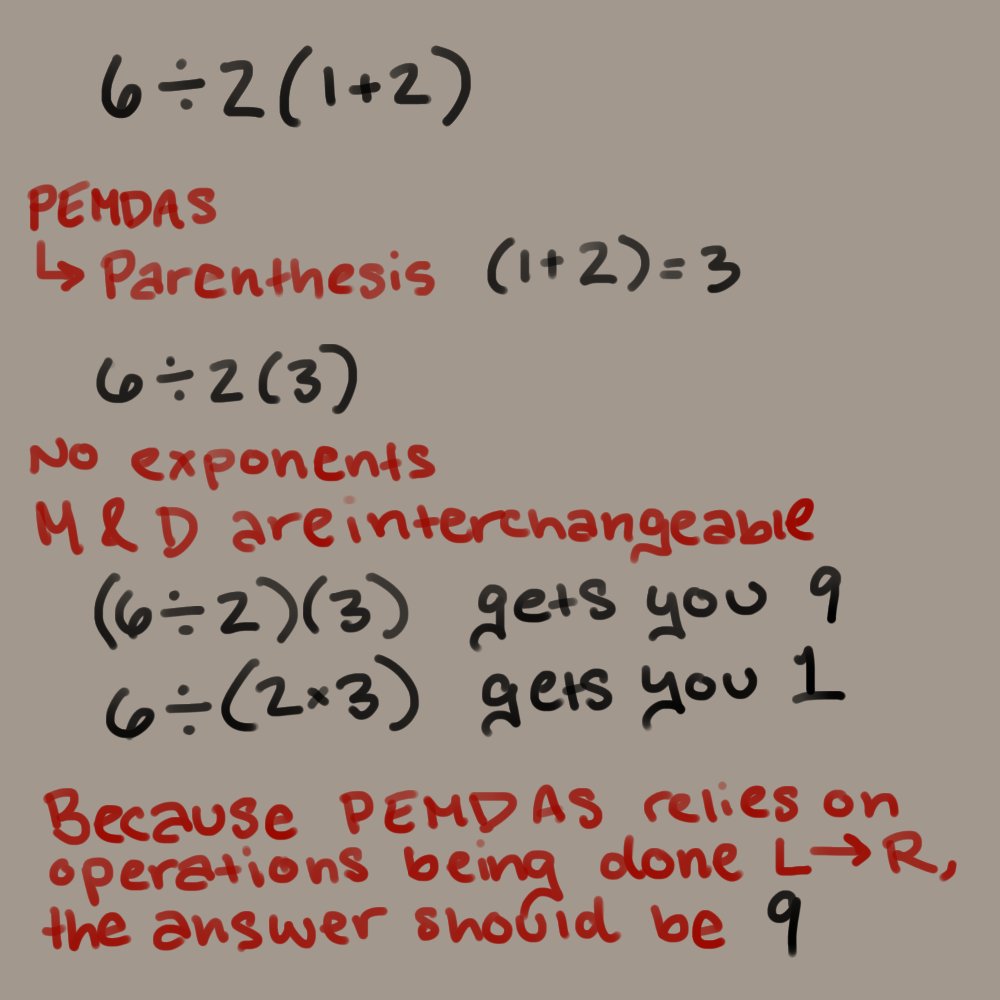 6÷2(1+2)
PEMDAS
↳ Parenthesis (1+2)=3
6÷2(3)
No exponents
M & D are interchangeable
(6÷2)(3) gets you 9
6÷(2×3) gets you 1
Because PEMDAS relies on
operations being done L→R,
the answer should be 9